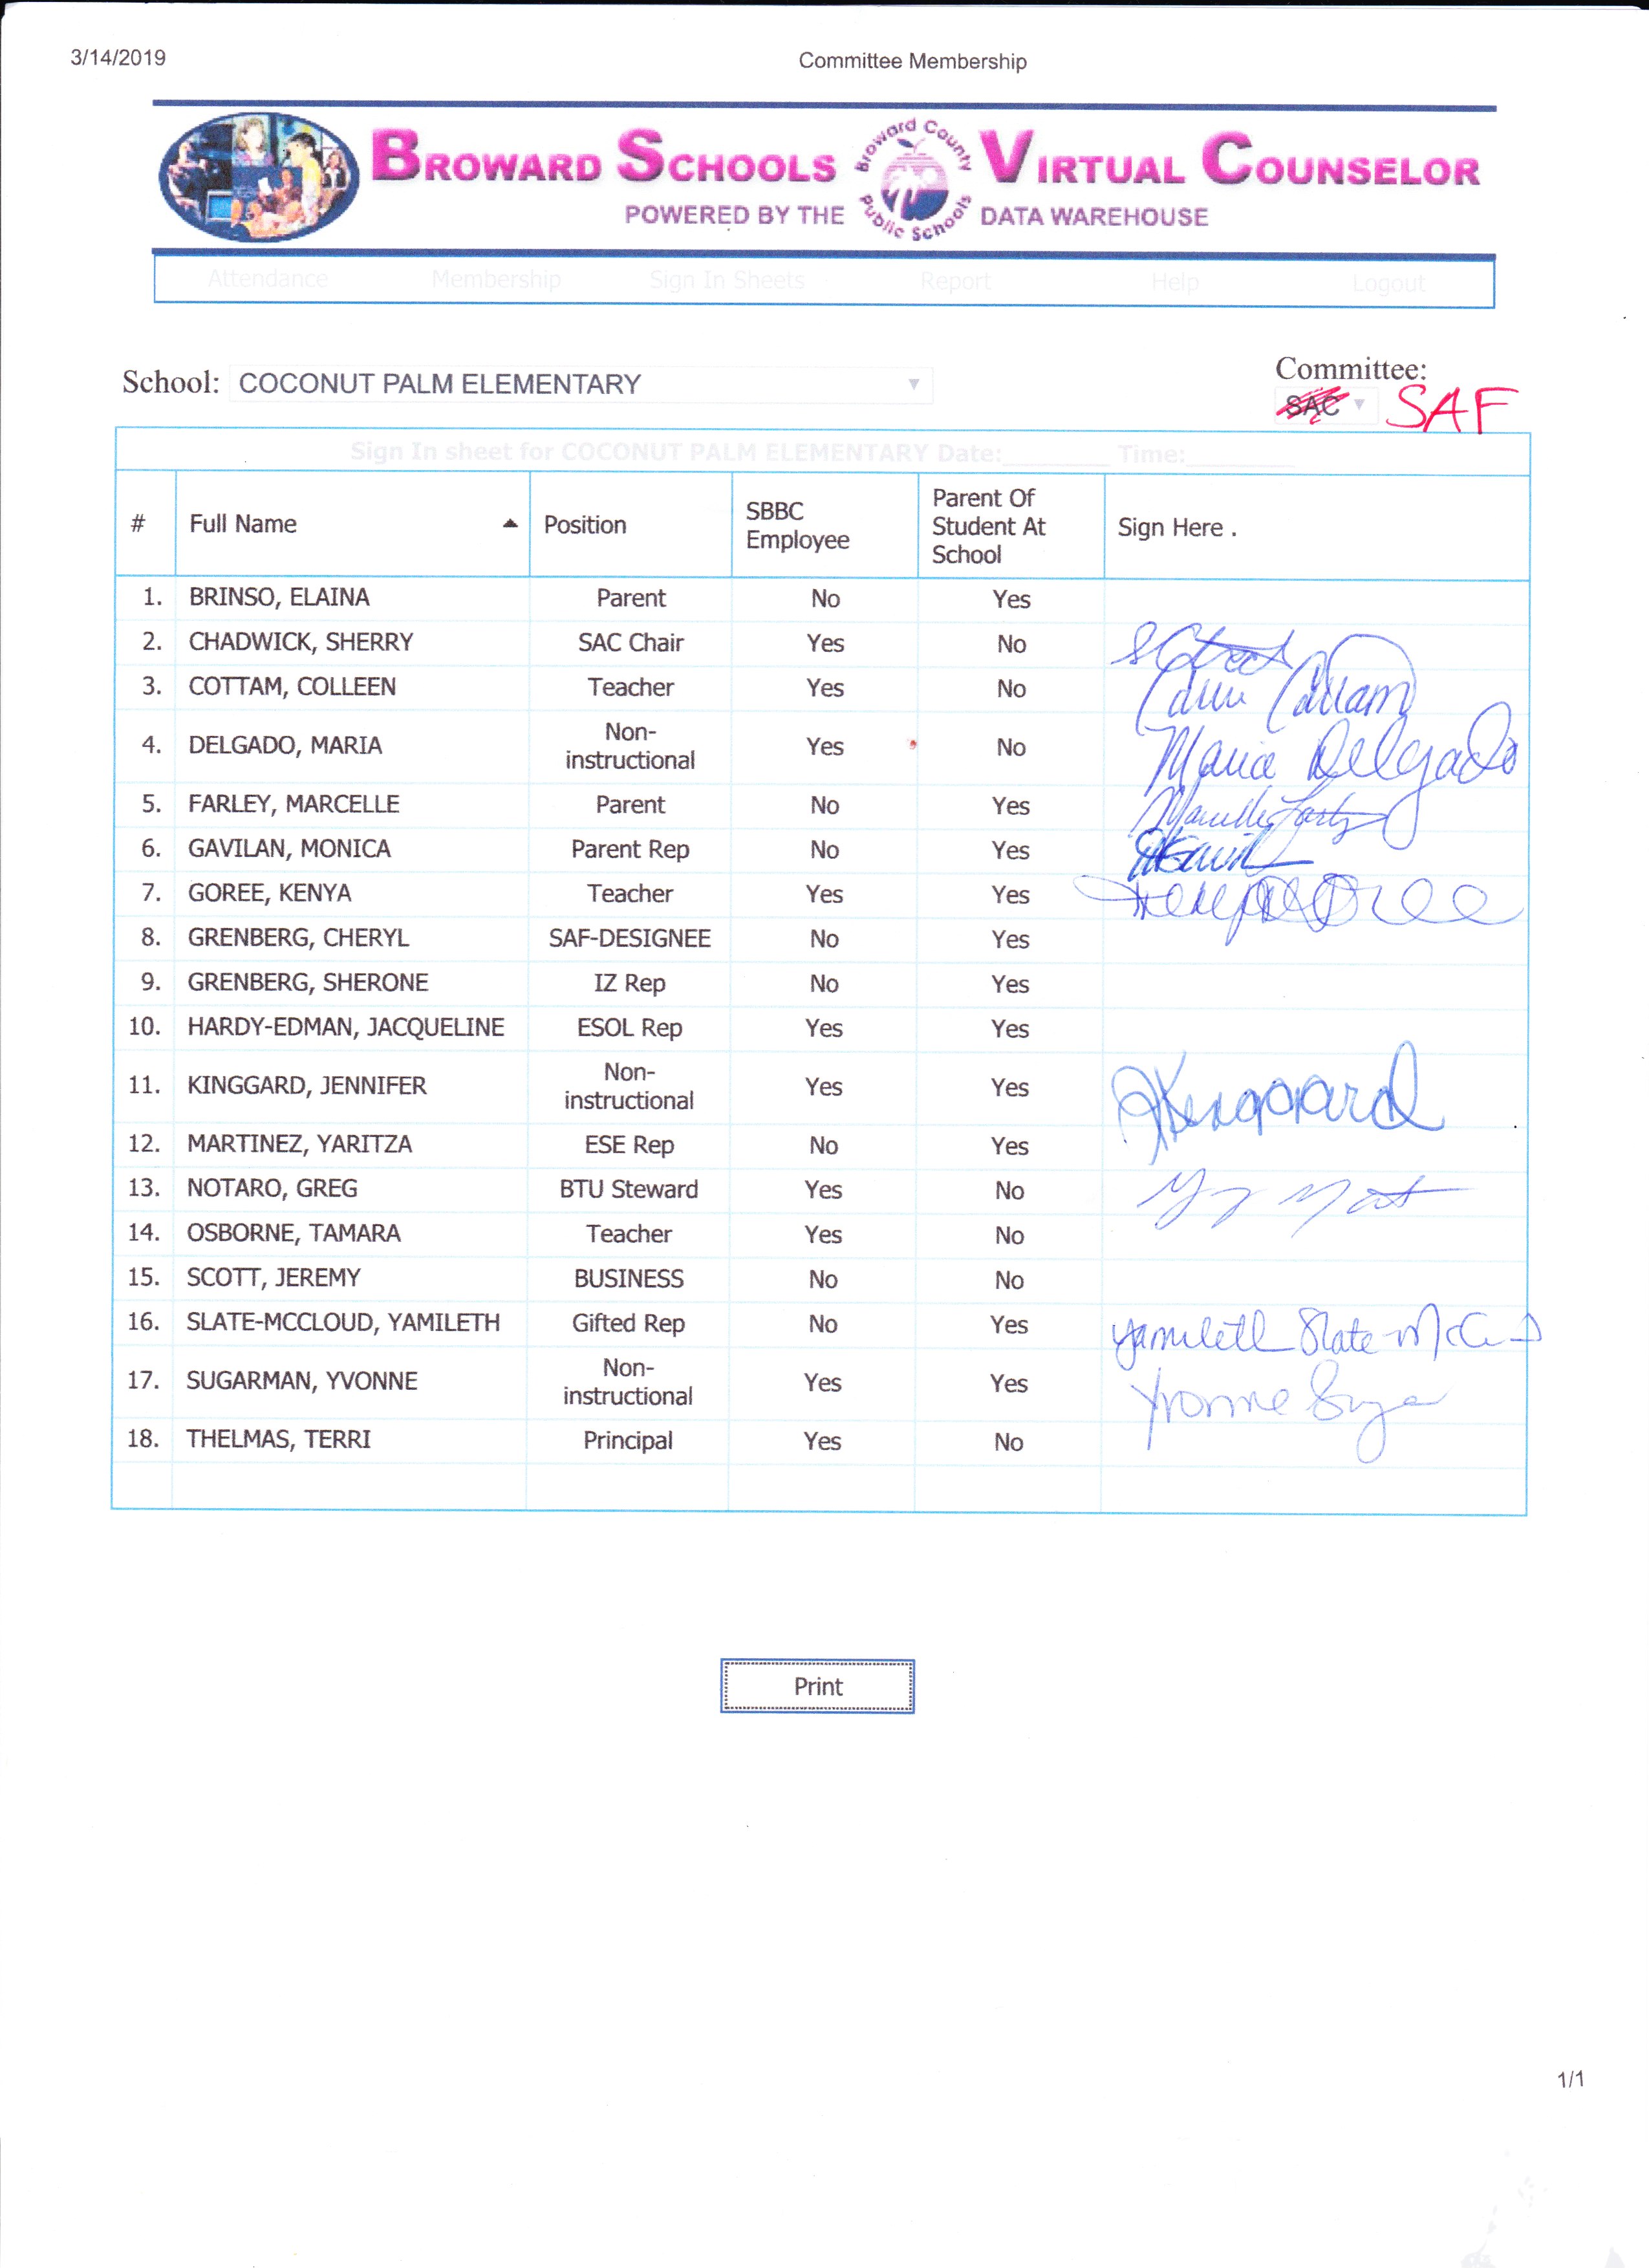 3/14/2019 Committee Membership
BROWARD SCHOOLS VIRTUAL COUNSELOR
Broward County Public Schools
POWERED BY THE DATA WAREHOUSE
Attendance Membership Sign In Sheets Report Help Logout
School: COCONUT PALM ELEMENTARY Committee:
SAC SAF
Sign In sheet for COCONUT PALM ELEMENTARY Date:________ Time:________
# Full Name Position SBBC Employee Parent Of Student At School Sign Here .
1. BRINSO, ELAINA Parent No Yes
2. CHADWICK, SHERRY SAC Chair Yes No
3. COTTAM, COLLEEN Teacher Yes No
4. DELGADO, MARIA Non-instructional Yes No Maria Delgado
5. FARLEY, MARCELLE Parent No Yes
6. GAVILAN, MONICA Parent Rep No Yes
7. GOREE, KENYA Teacher Yes Yes
8. GRENBERG, CHERYL SAF-DESIGNEE No Yes
9. GRENBERG, SHERONE IZ Rep No Yes
10. HARDY-EDMAN, JACQUELINE ESOL Rep Yes Yes
11. KINGGARD, JENNIFER Non-instructional Yes Yes
12. MARTINEZ, YARITZA ESE Rep No Yes
13. NOTARO, GREG BTU Steward Yes No
14. OSBORNE, TAMARA Teacher Yes No
15. SCOTT, JEREMY BUSINESS No No
16. SLATE-MCCLOUD, YAMILETH Gifted Rep No Yes Yamileth Slate
17. SUGARMAN, YVONNE Non-instructional Yes Yes Yvonne
18. THELMAS, TERRI Principal Yes No
Print
1/1